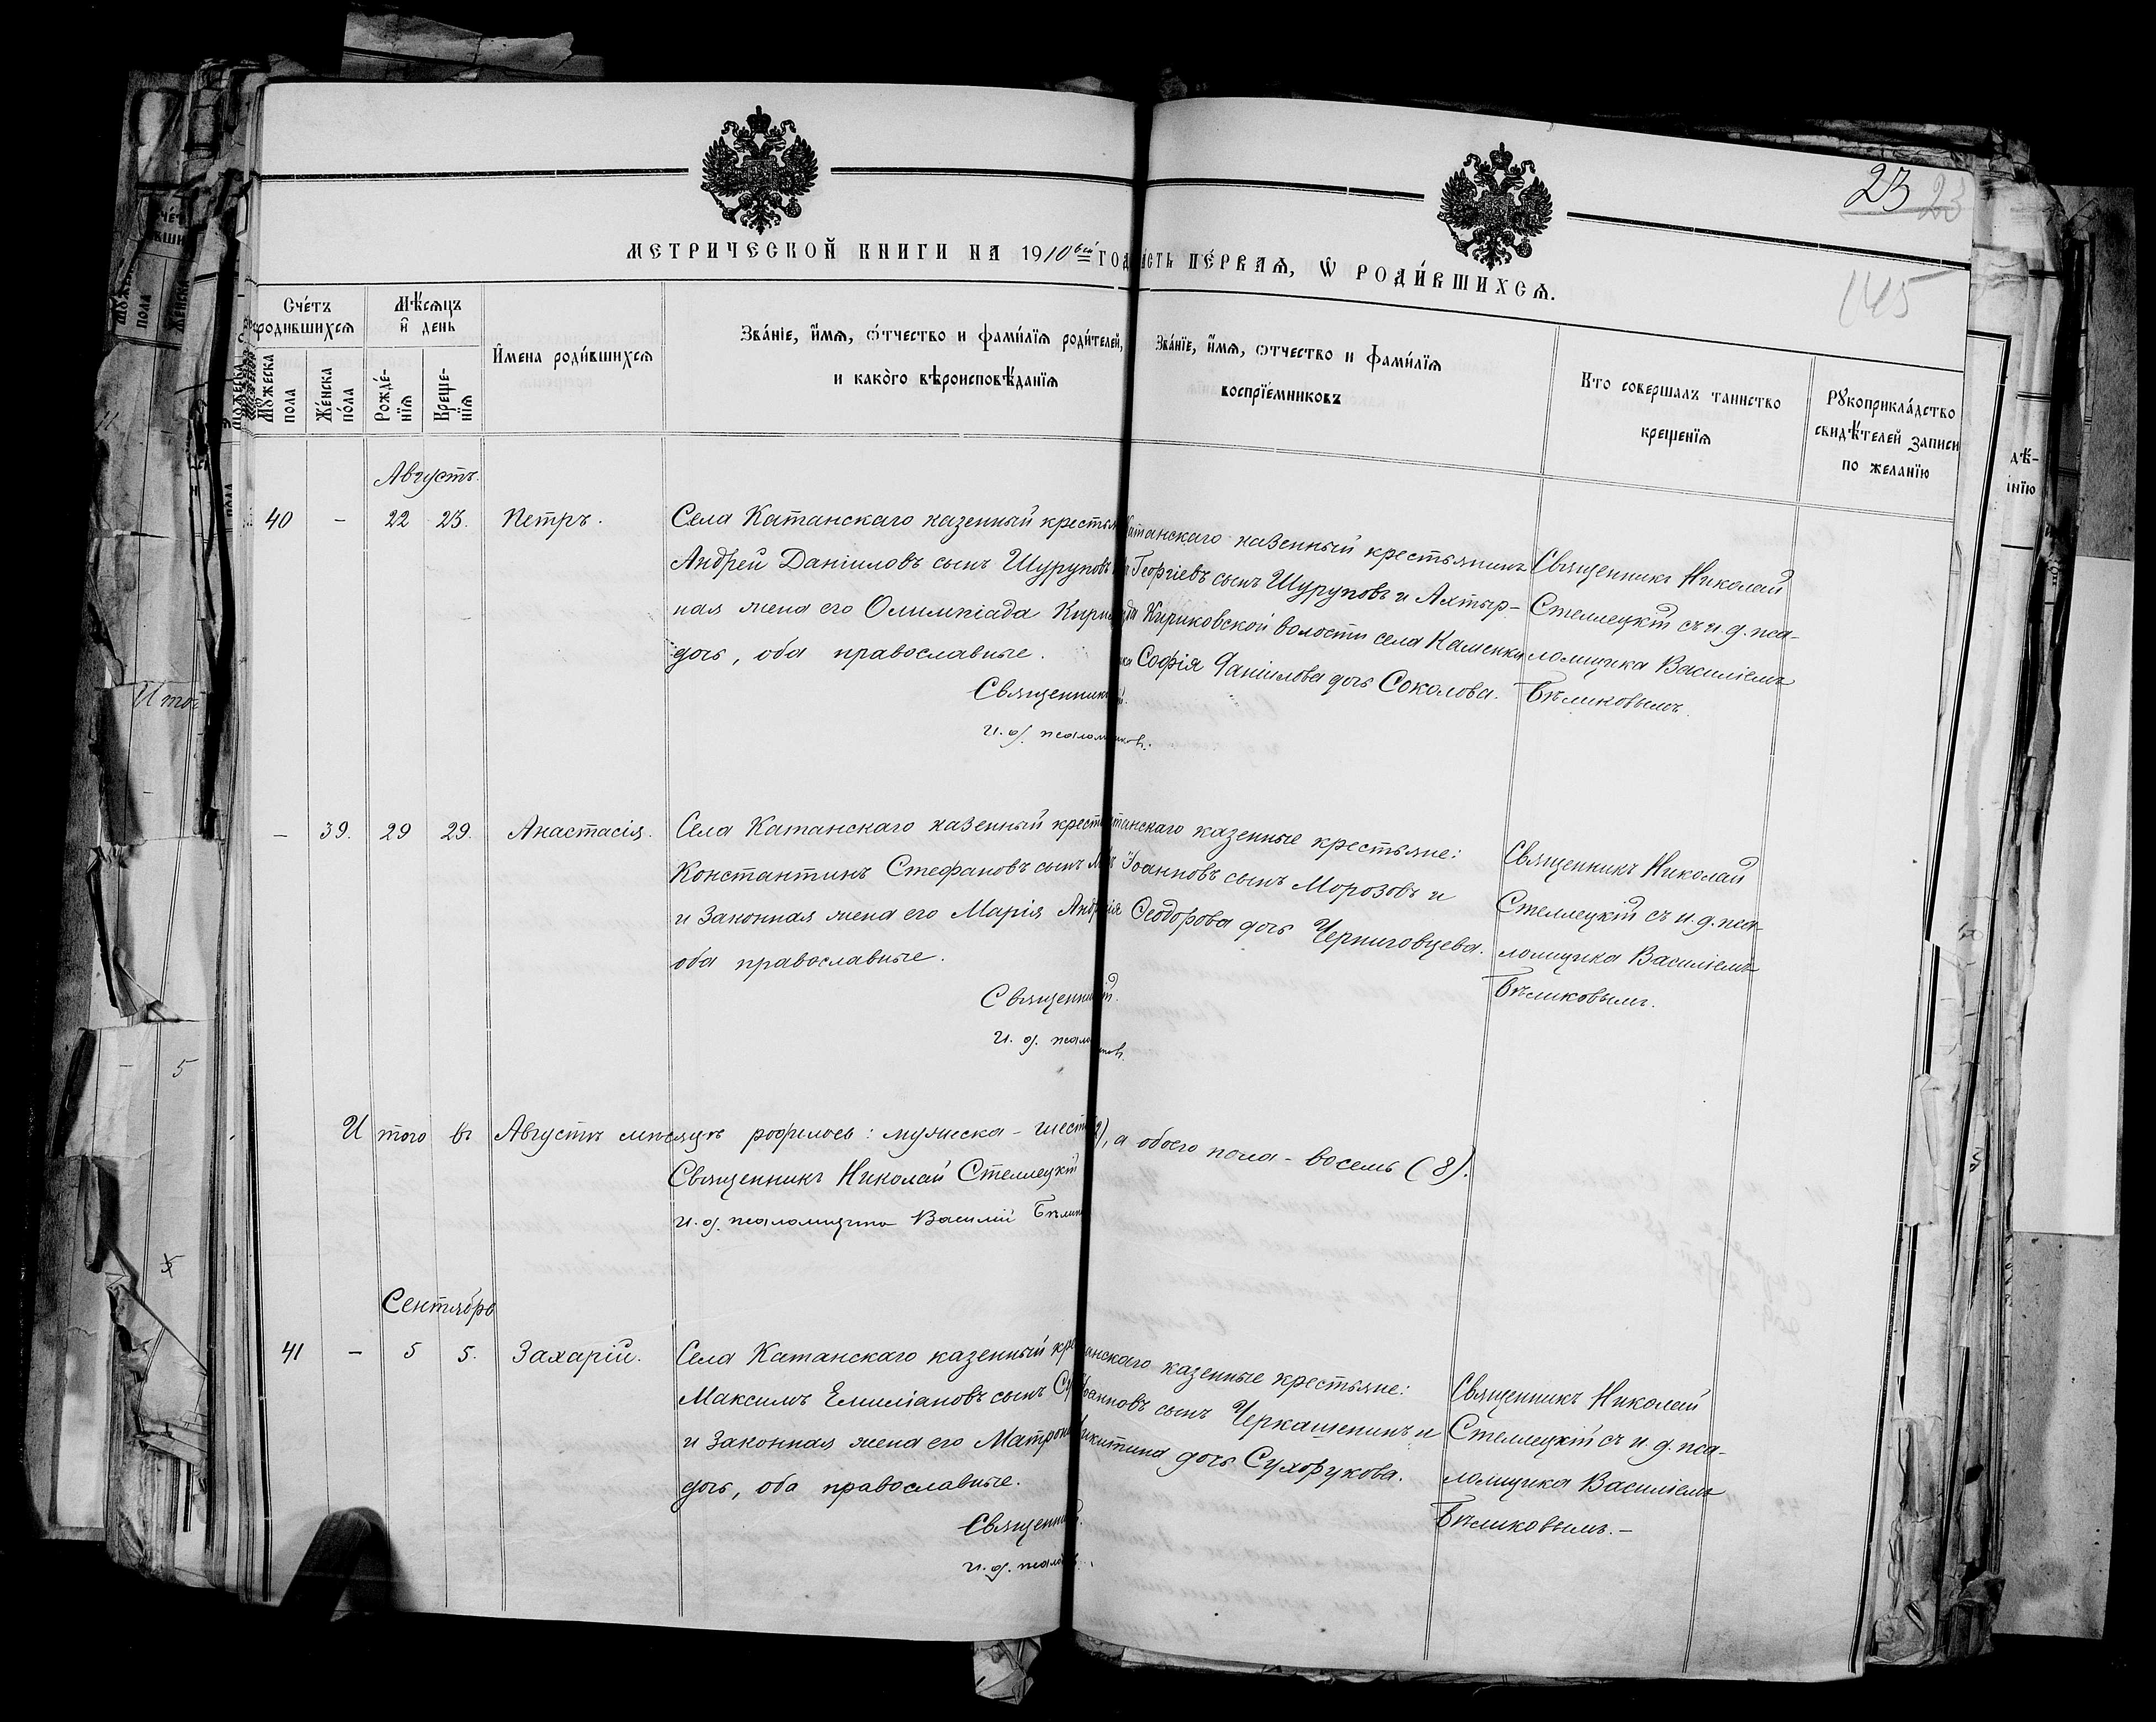 23 23
145
МЕТРИЧЕСКОЙ КНИГИ НА 1910ый ГОД
ЧАСТЬ ПЕ́РВАЯ, Ѡ РОДИ́ВШИХСѦ.
Сче́тъ родившихсѧ
Мѣ́сѧцъ и҆ день
И҆мена роди́вшихсѧ
Зва́нїе, и҆́мѧ, ѻ҆́тчество и фами́лїѧ роди́телей,
и како́го вѣроисповѣ́данїѧ
Зва́нїе, и҆́мѧ, ѻтчество и фами́лїѧ
воспрїе́мниковъ
Кто совершалъ таинство
крещенїѧ
Рꙋкоприкла́дство
свидѣ́телей записи
по желанїю
Мꙋжеска пола
Же́нска по́ла
Рожде́-нїѧ
Креще-нїѧ
Августъ.
40 - 22 23. Петръ.
Села Катанскаго казенный кресть
Андрей Даніиловъ сынъ Шуруповъ
ная жена его Олимпіада Кири
дочь, оба православные.
Священник
и. д. псалом
танскаго казенный крестьянинъ
Георгіевъ сынъ Шуруповъ и Ахтыр-
Кириковской волости села Каменки
Софія Даніилова дочь Соколова.
Священникъ Николай
Стеллецкій съ и. д. пса-
ломщика Василіемъ
Бѣликовымъ.
- 39. 29 29. Анастасія.
Села Катанскаго казенный крест
Константинъ Стефановъ сынъ М
и законная жена его Марія Анд
оба православные.
Священни
и. д. псал
танскаго казенные крестьяне:
Іоанновъ сынъ Морозовъ и
Ѳеодорова дочь Черниговцева.
Священникъ Николай
Стеллецкій съ и. д. пса-
ломщика Василіемъ
Бѣликовымъ.
Итого въ Августѣ мѣсяцѣ родилось: мужеска - шест
, а обоего пола - восемь (8).
Священникъ Николай Стеллецкій
и. д. псаломщика Василій Бѣлик
Сентябрь
41 - 5 5. Захарій.
Села Катанскаго казенный кре
Максимъ Емиліановъ сынъ Су
и законная жена его Матрон
дочь, оба православные.
Священни
и. д. псал
анскаго казенные крестьяне:
Іоанновъ сынъ Черкашенинъ и
Никитина дочь Сухорукова.
Священникъ Николай
Стеллецкій съ и. д. пса-
ломщика Василіемъ
Бѣликовымъ.-